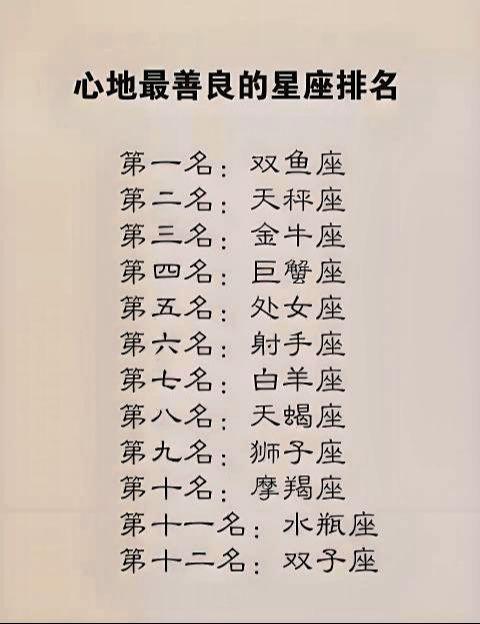 心地最善良的星座排名
第一名：双鱼座
第二名：天秤座
第三名：金牛座
第四名：巨蟹座
第五名：处女座
第六名：射手座
第七名：白羊座
第八名：天蝎座
第九名：狮子座
第十名：摩羯座
第十一名：水瓶座
第十二名：双子座